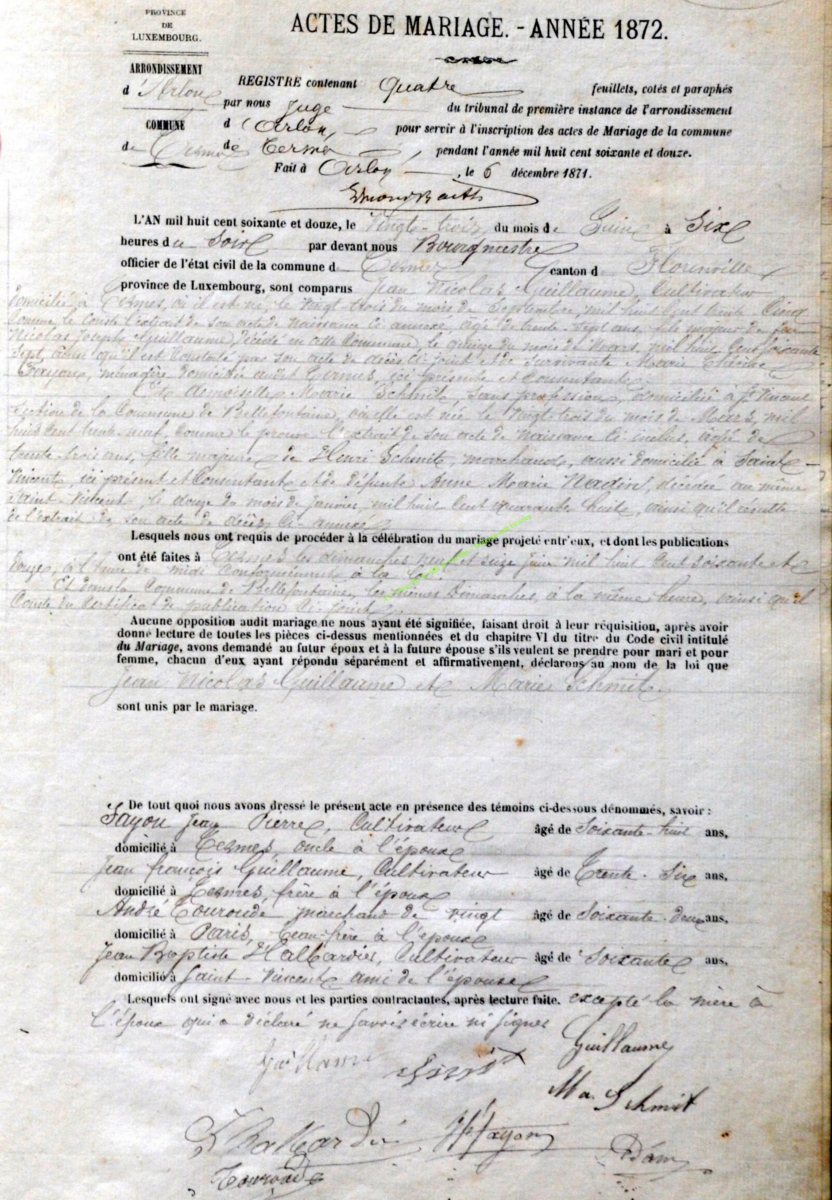 PROVINCE
DE
LUXEMBOURG.
ACTES DE MARIAGE. - ANNÉE 1872.
ARRONDISSEMENT
d'Arlon
COMMUNE
de Termes
REGISTRE contenant quatre feuillets, cotés et paraphés
par nous juge du tribunal de première instance de l'arrondissement
d'Arlon pour servir à l'inscription des actes de Mariage de la commune
de Termes pendant l'année mil huit cent soixante et douze.
Fait à Arlon, le 6 décembre 1871.
L'AN mil huit cent soixante et douze, le vingt-trois du mois de Juin à Six
heures du Soir par devant nous Bourgmestre
officier de l'état civil de la commune de Termes canton de Florenville
province de Luxembourg, sont comparus Jean Nicolas Guillaume, Cultivateur
domicilié à Termes, où il est né, le vingt trois du mois de Septembre, mil huit cent trente Cinq
comme le Constate l'extrait de son acte de naissance ci annexé, âgé de trente-sept ans, fils majeur de feu
Nicolas Joseph Guillaume, décédé en cette Commune, le quinze du mois de Mars, mil huit Cent soixante
Sept, ainsi qu'il est Constaté par son acte de décès ci joint et de survivante Marie Thérèse
ménagère domiciliée audit Termes, ici présente et Consentante.
Et demoiselle Marie Schmit, sans profession, domiciliée à St Vincent
Section de la Commune de Bellefontaine, où elle est née le Vingt trois du mois de Mars, mil
huit cent trente-neuf, Comme le prouve l'extrait de son acte de naissance ci inclus, âgée de
trente-trois ans, fille majeure de Henri Schmit, marchand, aussi domicilié à Saint-
Vincent, ici présent et Consentant et de défunte Anne Marie Nadin, décédée au même
Saint-Vincent, le douze du mois de janvier, mil huit Cent quarante huit, ainsi qu'il résulte
de l'extrait de son acte de décès ci-annexé
Lesquels nous ont requis de procéder à la célébration du mariage projeté entr'eux, et dont les publications
ont été faites à Termes les dimanches neuf et seize juin mil huit cent soixante et
douze, à l'heure de midi conformément à la loi
Et dans la Commune de Bellefontaine, les mêmes dimanches, à la même heure, ainsi qu'il
Conste du Certificat de publication ci-joint
Aucune opposition audit mariage ne nous ayant été signifiée, faisant droit à leur réquisition, après avoir
donné lecture de toutes les pièces ci-dessus mentionnées et du chapitre VI du titre du Code civil intitulé
du Mariage, avons demandé au futur époux et à la future épouse s'ils veulent se prendre pour mari et pour
femme, chacun d'eux ayant répondu séparément et affirmativement, déclarons au nom de la loi que
Jean Nicolas Guillaume et Marie Schmit
sont unis par le mariage.
De tout quoi nous avons dressé le présent acte en présence des témoins ci-dessous dénommés, savoir :
Fayon Jean Pierre, Cultivateur âgé de Soixante-huit ans,
domicilié à Termes oncle à l'époux
Jean François Guillaume, Cultivateur âgé de Trente-Six ans,
domicilié à Termes, frère à l'époux
André Touroude marchand de vingt âgé de Soixante-deux ans,
domicilié à Paris, beau-frère à l'époux
Jean Baptiste Halbardier, Cultivateur âgé de Soixante ans,
domicilié à Saint-Vincent ami de l'épouse
Lesquels ont signé avec nous et les parties contractantes, après lecture faite. excepté la mère à
l'époux qui a déclaré ne savoir écrire ni signer
Guillaume
Guillaume
Ma. Schmit
JP Fayon
Touroude